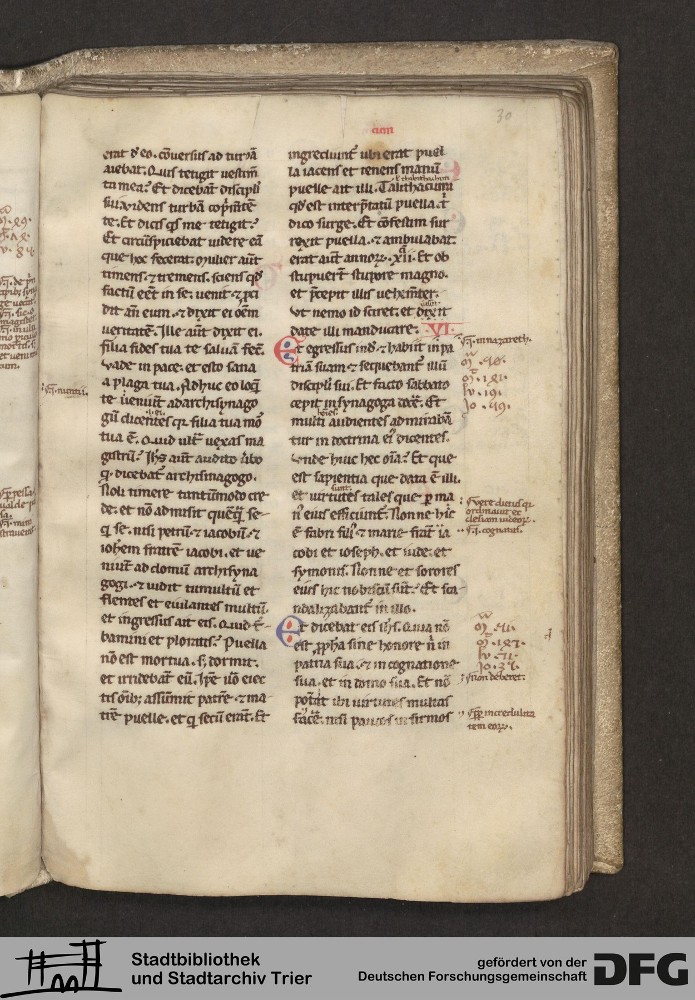 30
erat de eo. cōuersus ad turbā
aiebat. Quis tetigit uestim̄
ta mea? Et dicebāt discipli
sui. videns turbā cōp̄mētē
te. Et dicis q̇s me tetigit?
Et circūspiciebat uidere eā
que hoc fecerat. Mulier aūt
timens ⁊ tremens. sciens qd̓
factū eēt in se. uenit ⁊ p̄ci
dit an̄ eum. ⁊ dixit ei oēm
ueritatē. Ille aūt dixit ei.
filia fides tua te saluā fec̄.
vade in pace. et esto sana
a plaga tua. Adhuc eo loq̄
te ueniūt ad archisynago
gū dicentes q̇ filia tua mor̄
tua ē. Quid ult̄ uexas ma
gistrū? Ih̄s aūt audito ūbo
q̇ dicebat᷑ archisinagogo.
Noli timere tantūmodo cre
de. et nō admisit quēq̄ se
q̇ se. nisi petrū. ⁊ iacobū. ⁊
ioh̄em fratrē iacobi. et ue
niūt ad domū archisyna
gogi. ⁊ uidit tumultū et
flentes et eiulantes multū.
et ingressus ait eis. Quid t᷑
bamini et ploratis? Puella
nō est mortua. s; dormit.
et irridebāt eū. Ip̄e uō eiec
tis oīb; assūmit patrē. ⁊ ma
trē puelle. et q̇ secū erāt. Et
ingrediunt᷑ ubi erat puel
la iacens et tenens manū
puelle ait illi. Talithacumi
qd̓ est interp̄tatū puella. t̄
dico surge. Et cōfestim sur
rexit puella. ⁊ ambulabat.
erat aūt annoꝝ. xii. Et ob
stupuerūt stupore magno.
et p̄cepit illis uehemt̄er.
vt nemo id sciret. et dixit
date illi manducare. VI.
Et egressus inde ⁊ habiit in pa
triā suam ⁊ sequebant᷑ illū
discipli sui. Et facto sabbato
cepit in synagoga docē. Et
multi audientes admirabā
tur in doctrina ei᷒ dicentes.
vnde huic hec oīa? Et que
est sapientia que data ē illi.
et uirtutes tales que p̱ ma
n᷒ eius efficiunt᷑. Nonne hic
ē fabri fili᷒ ⁊ marie frat̄ ia
cobi et ioseph. et iude. et
symonis. Nonne et sorores
eius hic nobiscū sūt. Et sca
ndalizabant᷑ in illo.
Et dicebat eis ih̄s. Quia nō
est p̱pha sine honore n̄ in
patria sua. ⁊ in cognatione
sua. et in domo sua. Et nō
potāt ibi uirtutes multas
facē. nisi paucos infirmos
.i. in nazareth.
Stadtbibliothek
und Stadtarchiv Trier
gefördert von der
Deutschen Forschungsgemeinschaft
DFG